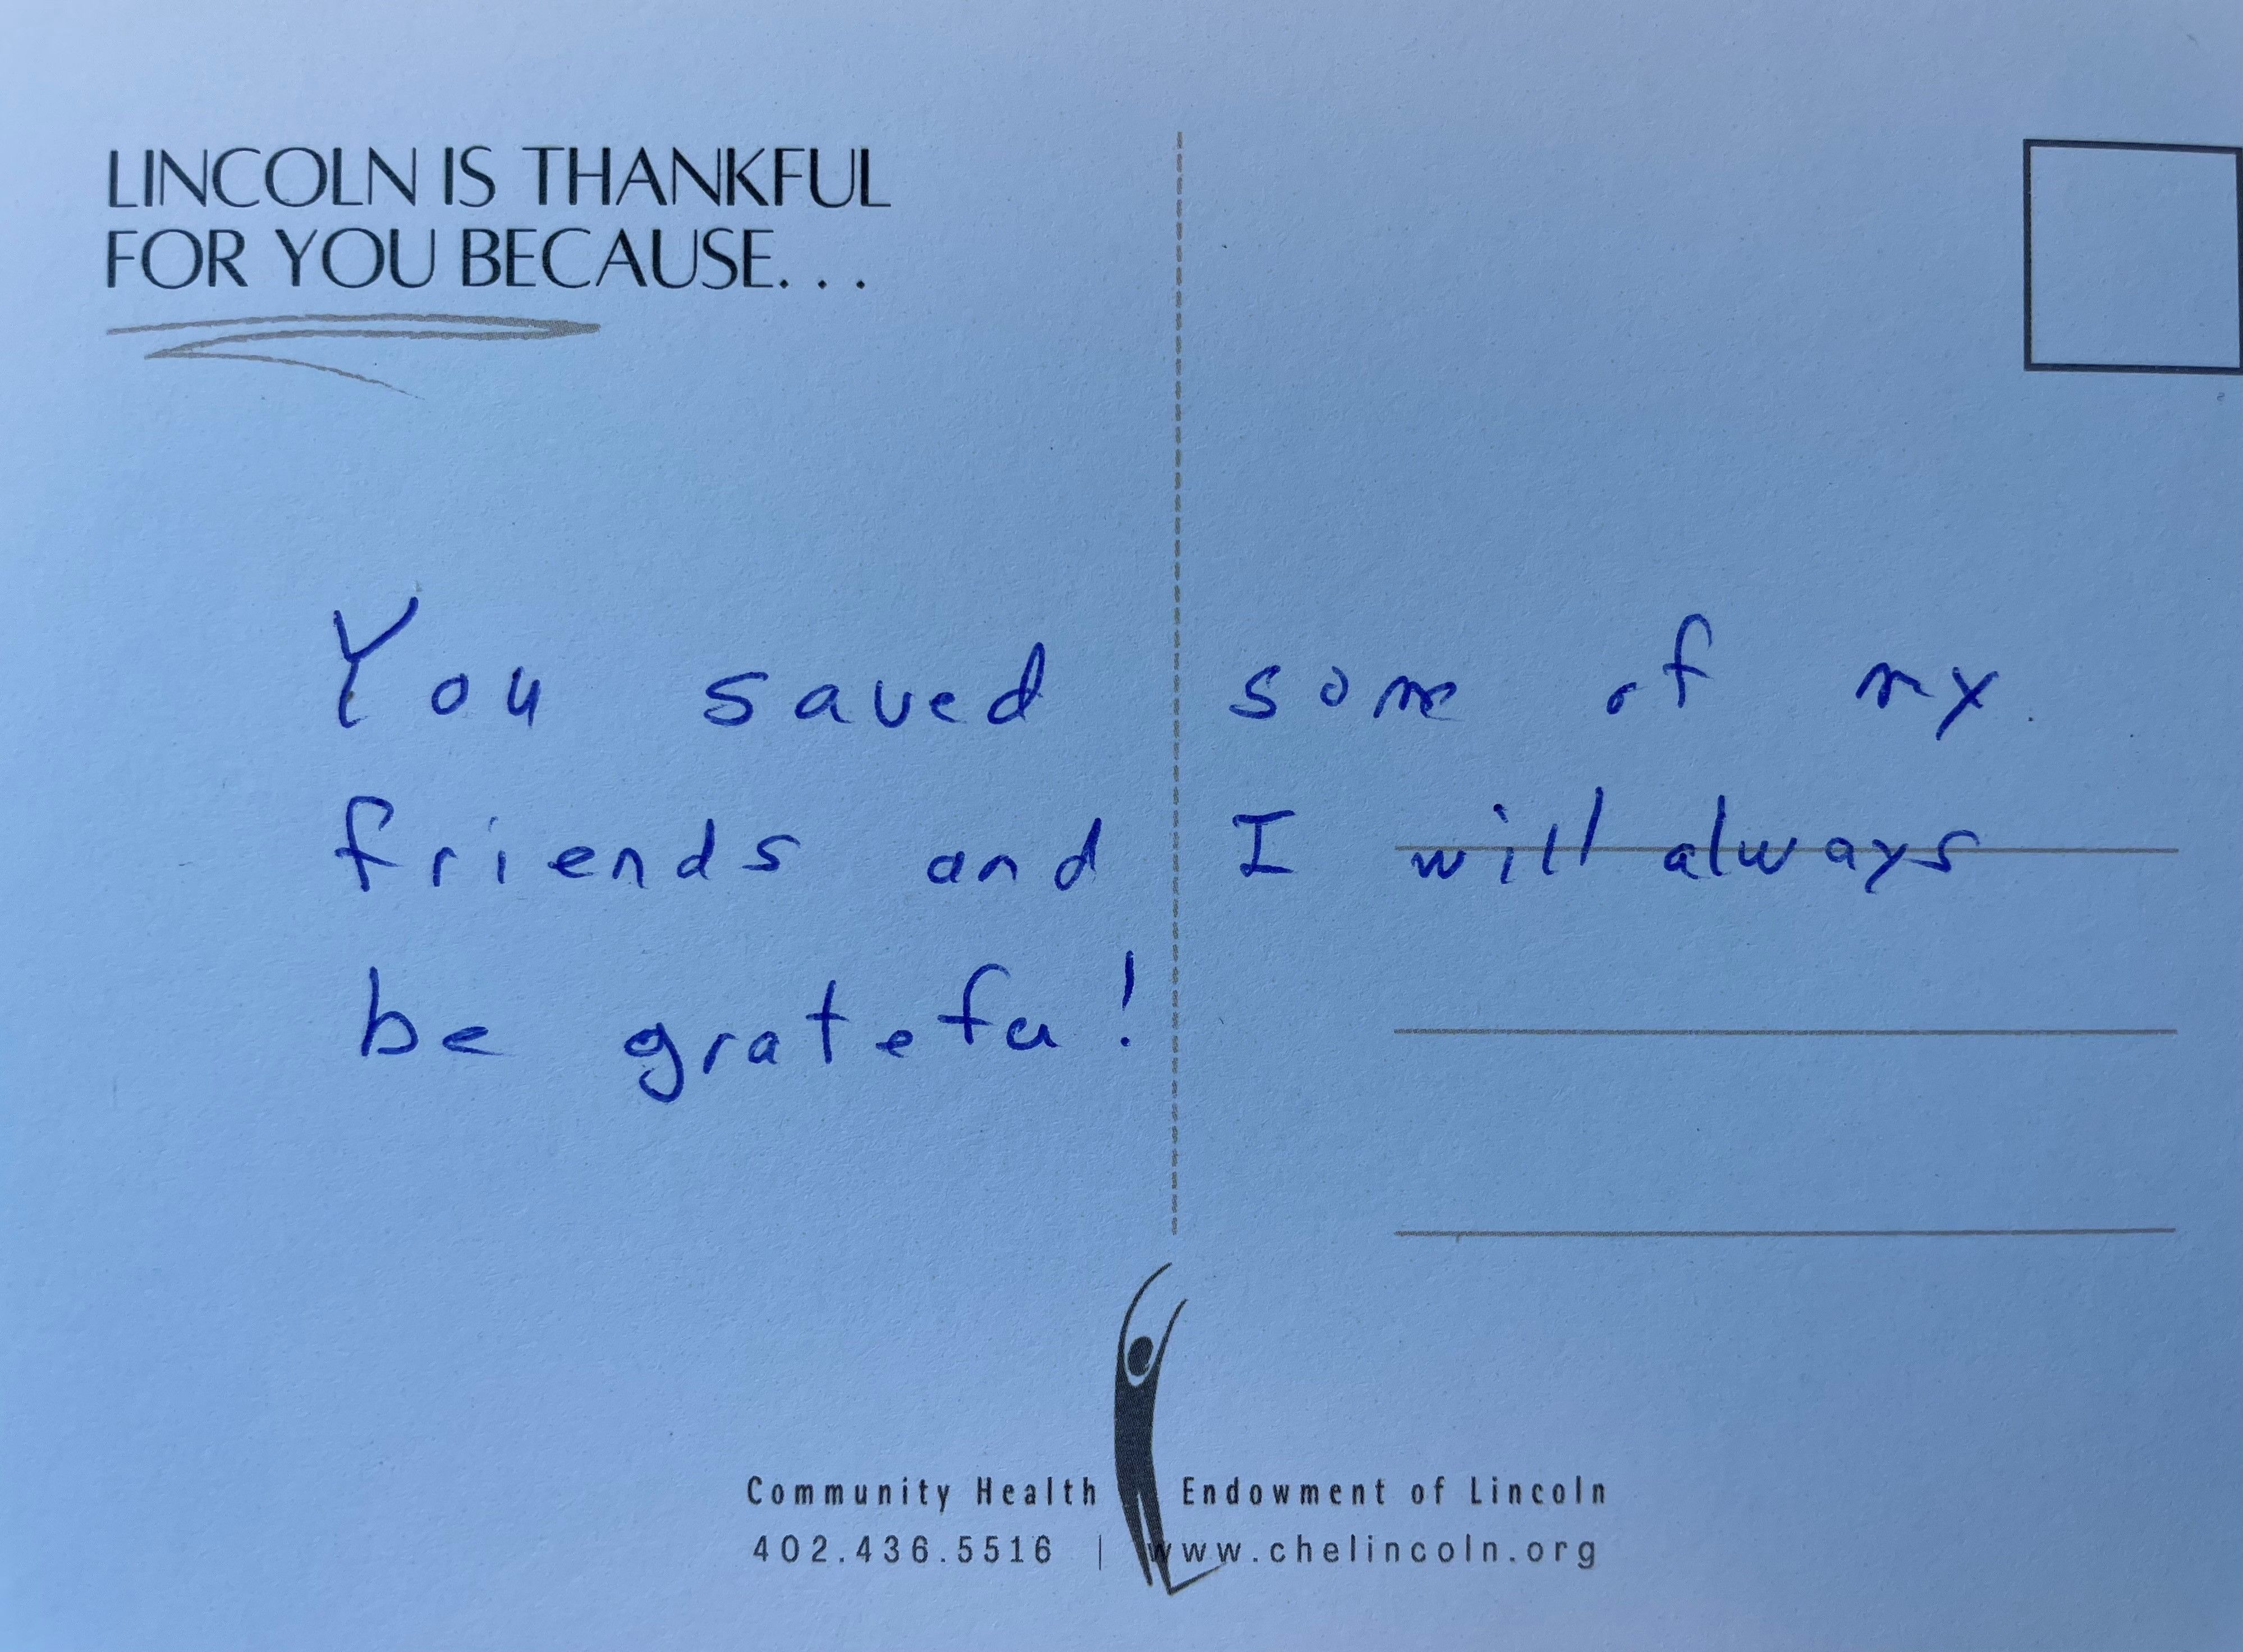 LINCOLN IS THANKFUL
FOR YOU BECAUSE...
You saved some of my
friends and I will always
be gratefu!
Community Health Endowment of Lincoln
402.436.5516 | www.chelincoln.org